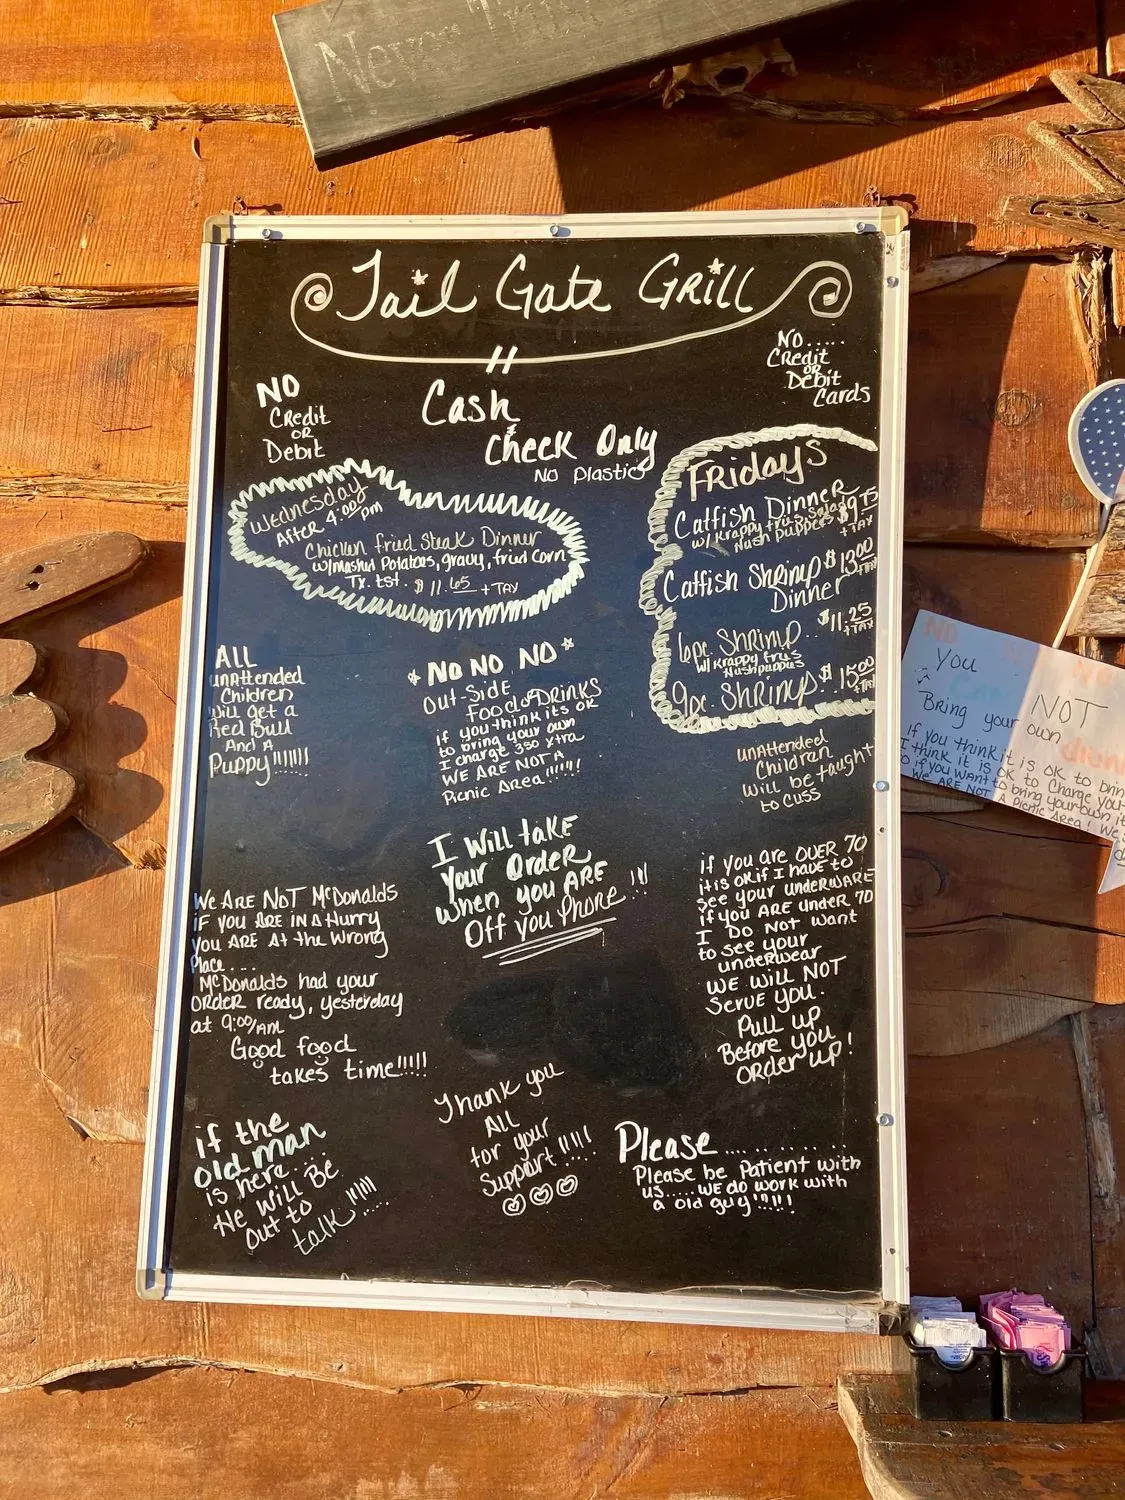 Never
Tail Gate Grill
NO
Credit
OR
Debit
Cash
&
Check Only
No Plastic
NO.....
Credit
OR
Debit
Cards
Wednesday
After 4:00
pm
Chicken fried Steak Dinner
w/mashed Potatoes, gravy, fried Corn
Tx. tst. $11.65 + TAX
FRIDAYS
Catfish Dinner $9.75
w/ Krappy fries, Salad + TAX
Hush Puppers
Catfish Shrimp $13.00
Dinner + TAX
6pc. Shrimp.. $11.25
w/ Krappy fries + TAX
Hushpuppies
9pc. Shrimp. $15.00
+ TAX
ALL
unattended
Children
Will get a
Red Bull
And A
Puppy!!!!!!!
* NO NO NO *
Out-Side
Food or DRINKS
if you think its OK
to bring your own
I charge 350 xtra
WE ARE NOT A
Picnic Area!!!!!!
unattended
Children
Will be taught
to cuss
I Will take
Your Order
When you ARE
Off you Phone!!!
WE ARE NOT McDonalds
IF YOU ARE IN A Hurry
you ARE At the Wrong
Place....
McDonalds had your
order ready, yesterday
at 9:00/AM
Good food
takes time!!!!!
if you are OVER 70
it is OK if I have to
see your underWARE
if you ARE under 70
I DO NOT want
to see your
underwear
WE WILL NOT
Serve you.
Pull up
Before you
order up!
if the
old man
is here....
He Will BE
out to
talk!!!!!
Thank you
All
for your
Support!!!!!
Please..........
Please be Patient with
us.....WE do work with
a old guy!!!!!
NO
You
NOT
Bring your own
if you think it is OK to bring
I think it is OK to Charge you
so if you want to bring your own it
WE ARE NOT A Picnic Area! We